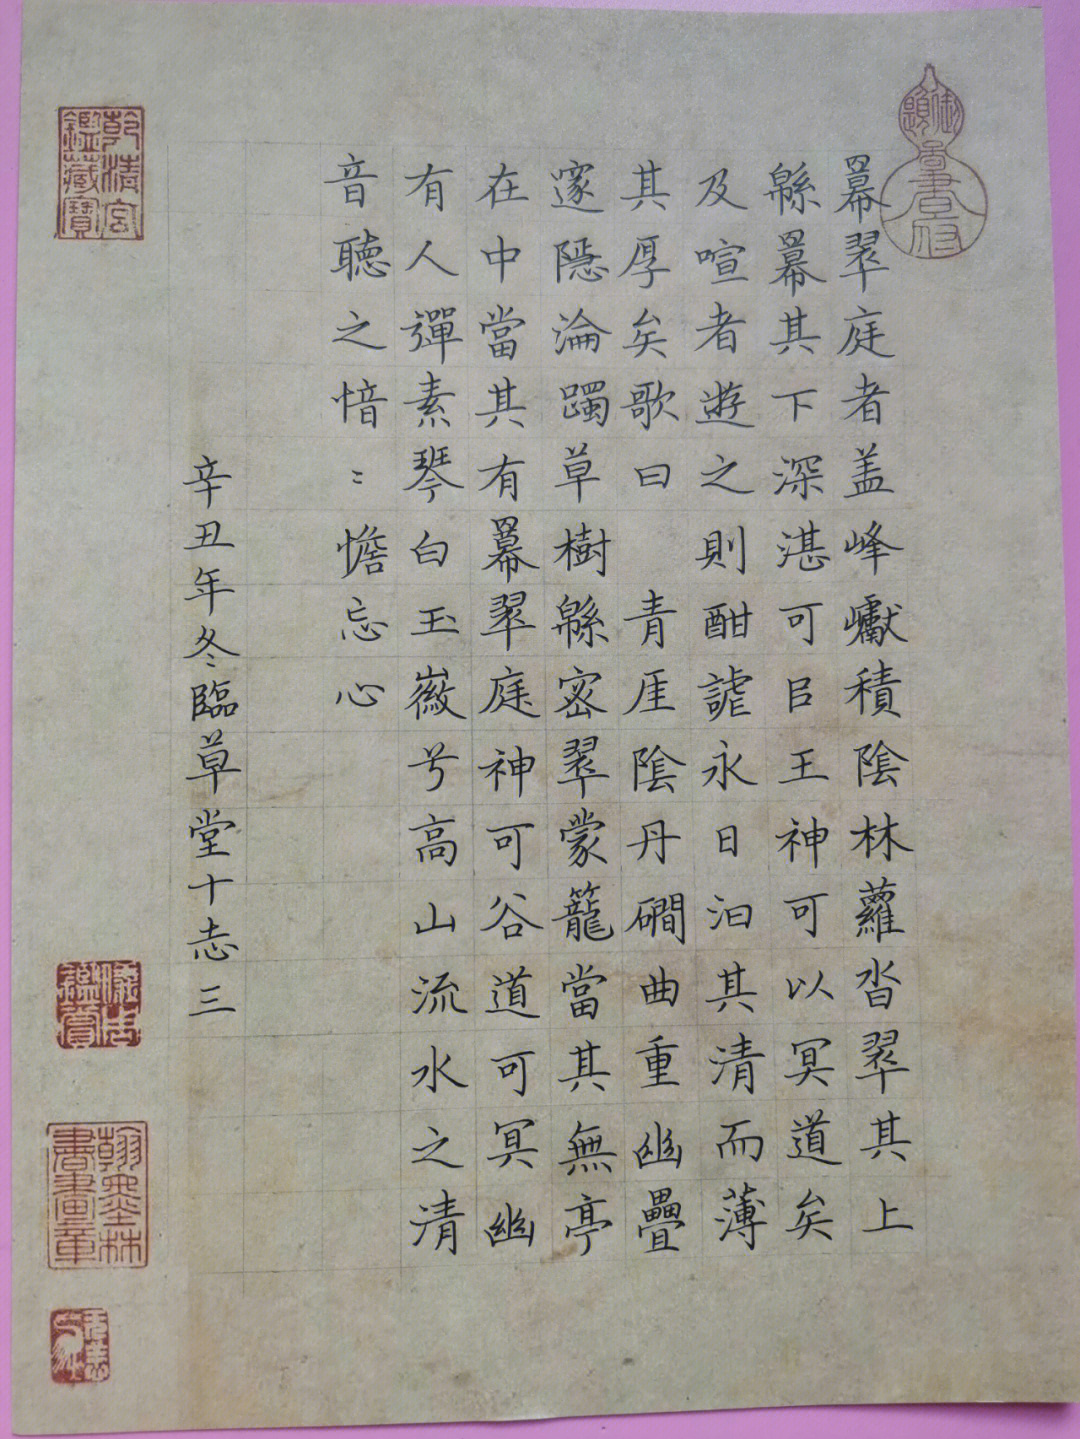 幕翠庭者盖峰巘積陰林蘿沓翠其上
緜幕其下深湛可㠯王神可以冥道矣
及喧者遊之則酣謔永日汩其清而薄
其厚矣歌曰 青厓陰丹磵曲重幽疊
邃隱淪躅草樹緜密翠蒙籠當其無亭
在中當其有幕翠庭神可谷道可冥幽
有人彈素琴白玉徽兮高山流水之清
音聽之愔〻憺忘心
辛丑年冬臨草堂十志三
御題
畫書府
乾清宮鑑藏寶
鑑賞
翰墨林書畫章